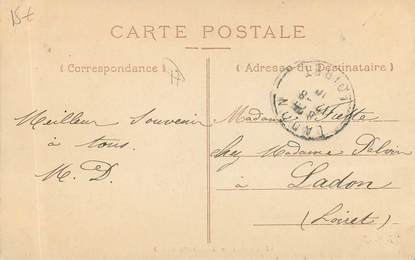 15f
CARTE POSTALE
( Correspondance )
( Adresse du Destinataire )
Meilleur Souvenir
à tous.
M. D.
Madame
chez Madame
à Ladon
(Loiret)
LADON
LOIRET